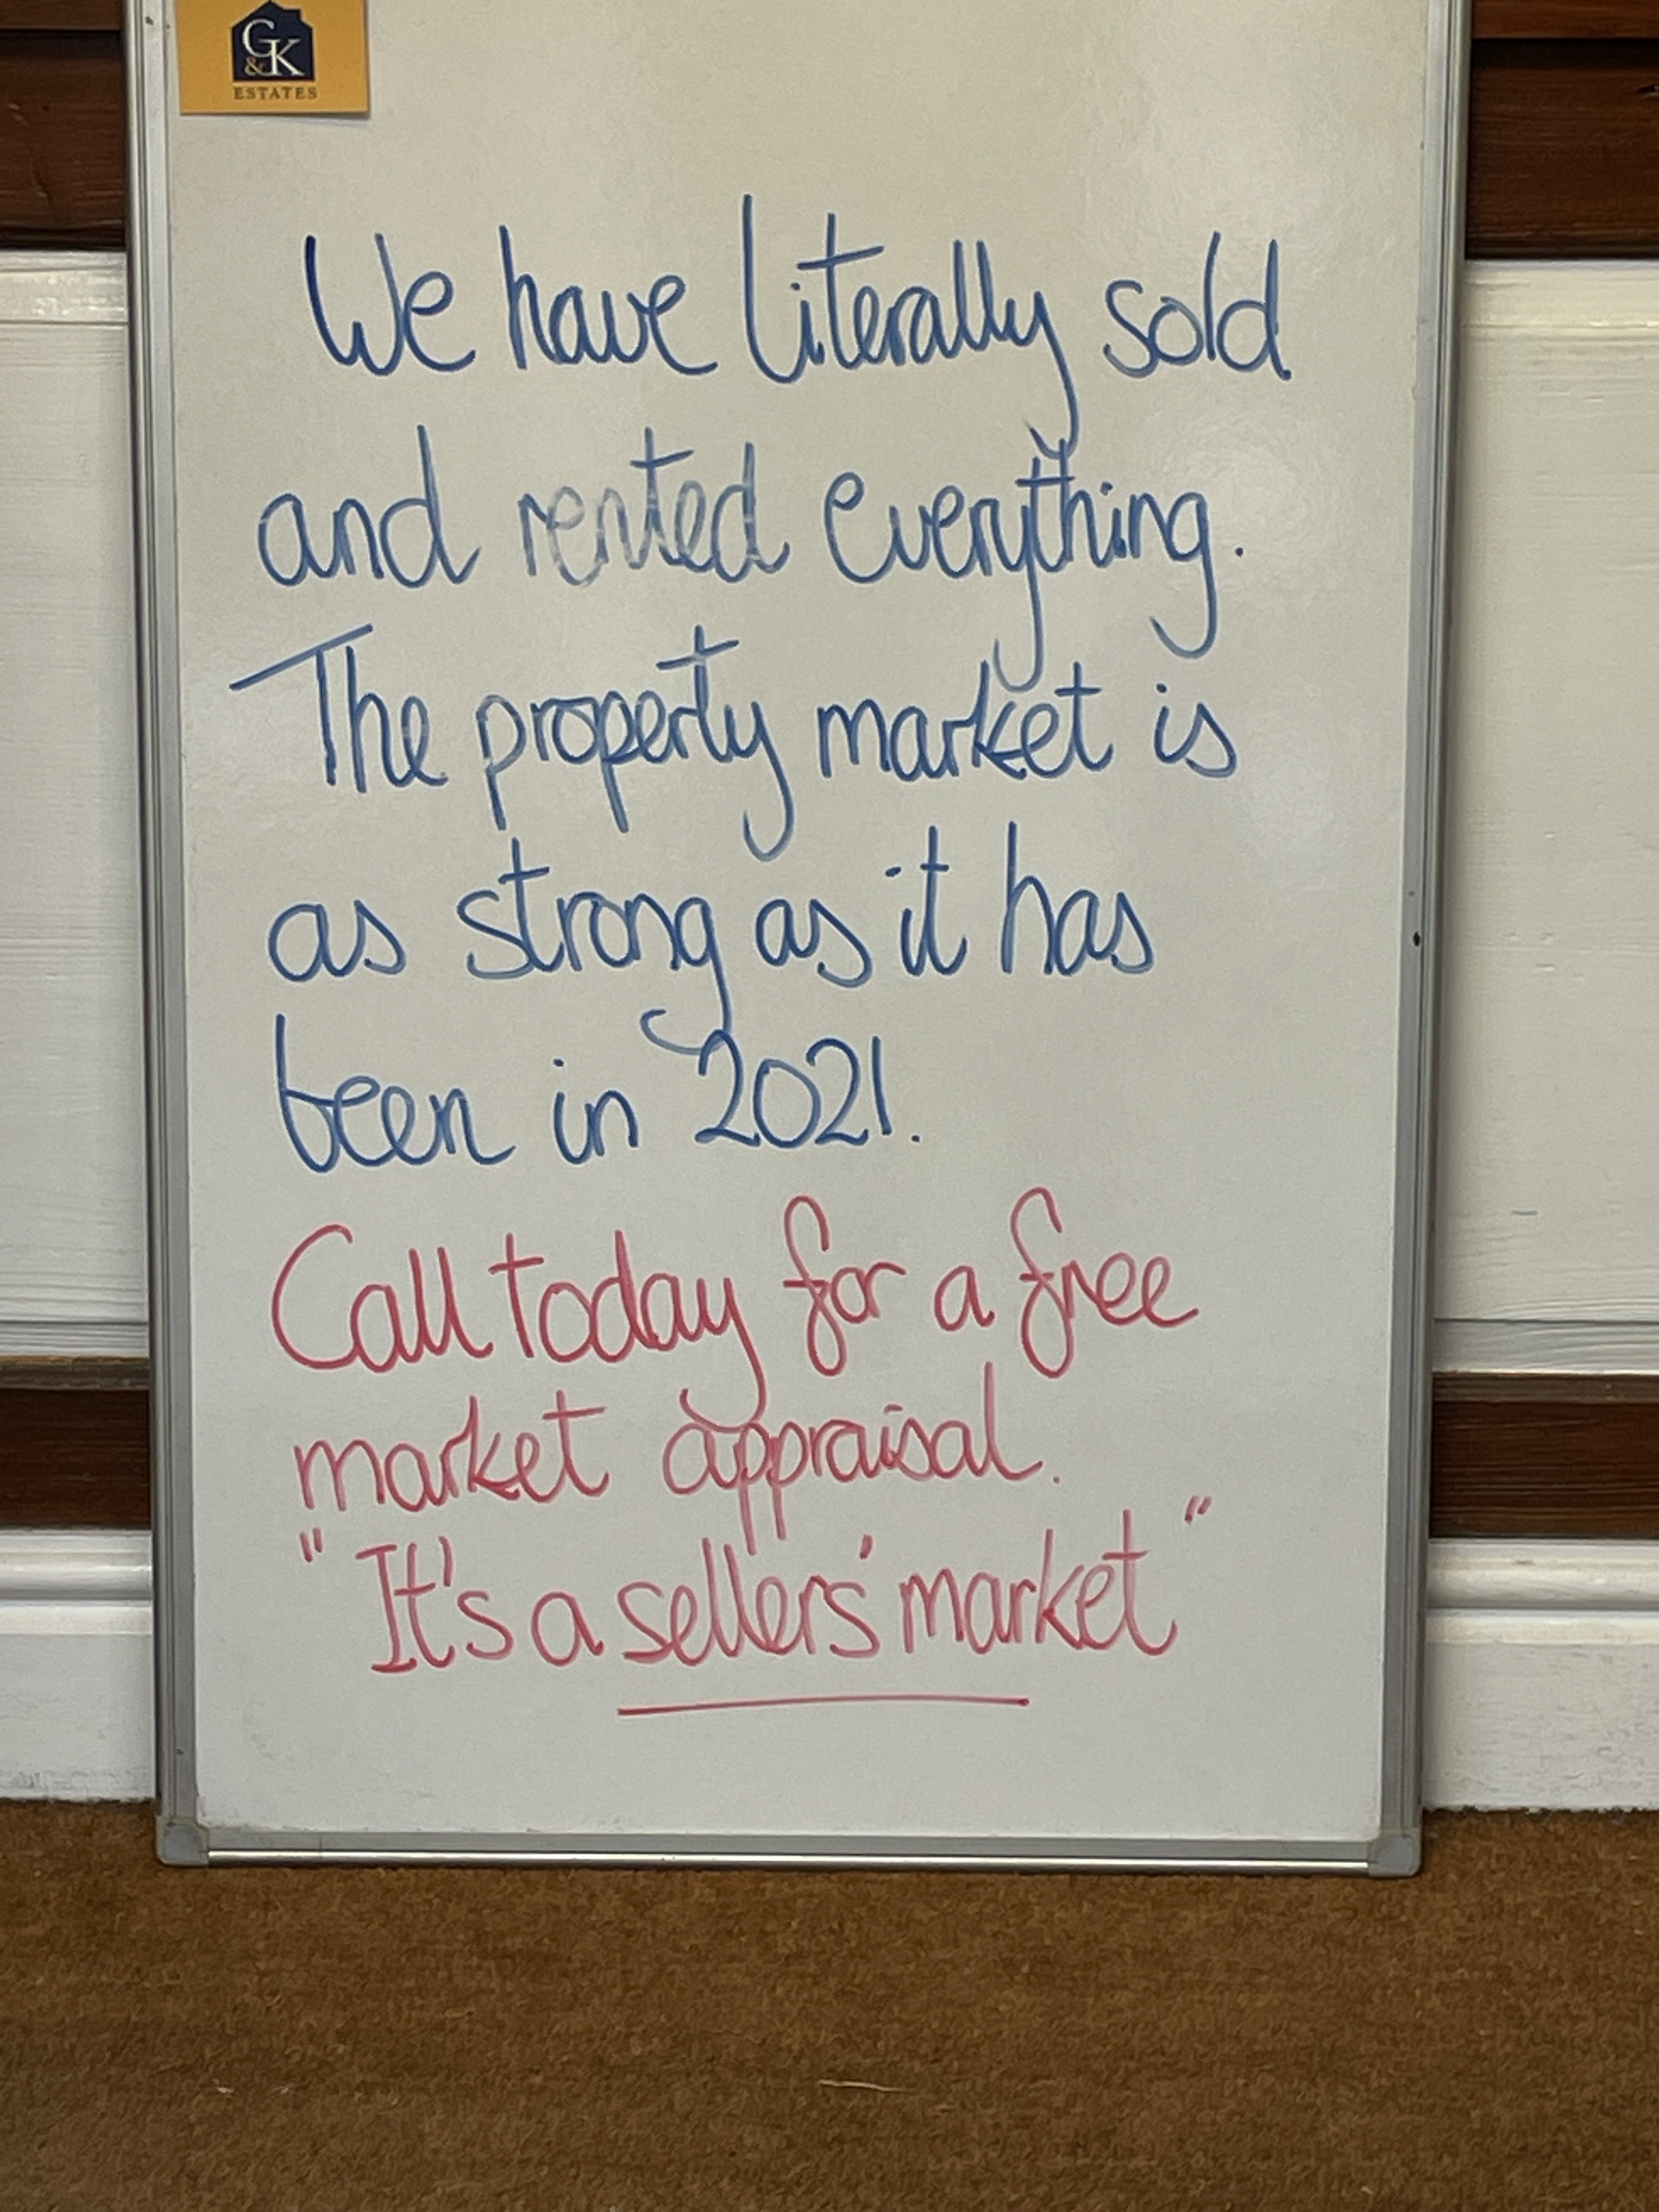 G&K
ESTATES
We have literally sold
and rented everything.
The property market is
as strong as it has
been in 2021.
Call today for a free
market appraisal.
"It's a sellers' market"